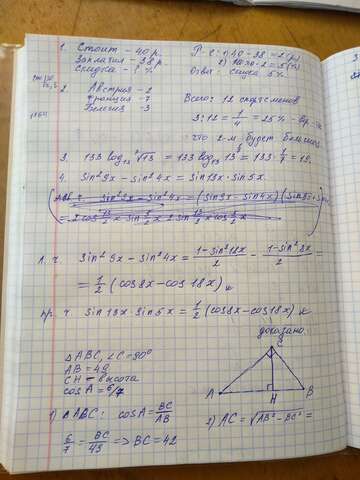 1. Стоит - 40 р.
Заплатил - 38 р.
Скидка - ? %
Р-е: 1) 40 - 38 = 2 (р.)
Ответ: скидка 5%
2. Австрия - 2
Франция - 7
Бельгия - 3
Всего: 12 спортсменов
3:12 = 1/4 = 25% -
что 2-м будет бельгиец
3. 133 log₁₃ ⁷√13 = 133 log₁₃ 13^(1/7) = 133 · 1/7 = 19.
4. sin²9x - sin²4x = sin13x · sin5x.
л. ч. sin²9x - sin²4x = (1-sin²18x)/2 - (1-sin²8x)/2 =
= 1/2 (cos8x - cos18x)
пр. ч. sin13x · sin5x = 1/2 (cos8x - cos18x)
доказано.
△ABC, ∠C = 90°
AB = 49
CH - высота
cosA = 6/7
C
A
H
B
1) △ABC: cosA = BC/AB
2) AC = √AB² - BC² =
6/7 = BC/49 => BC = 42